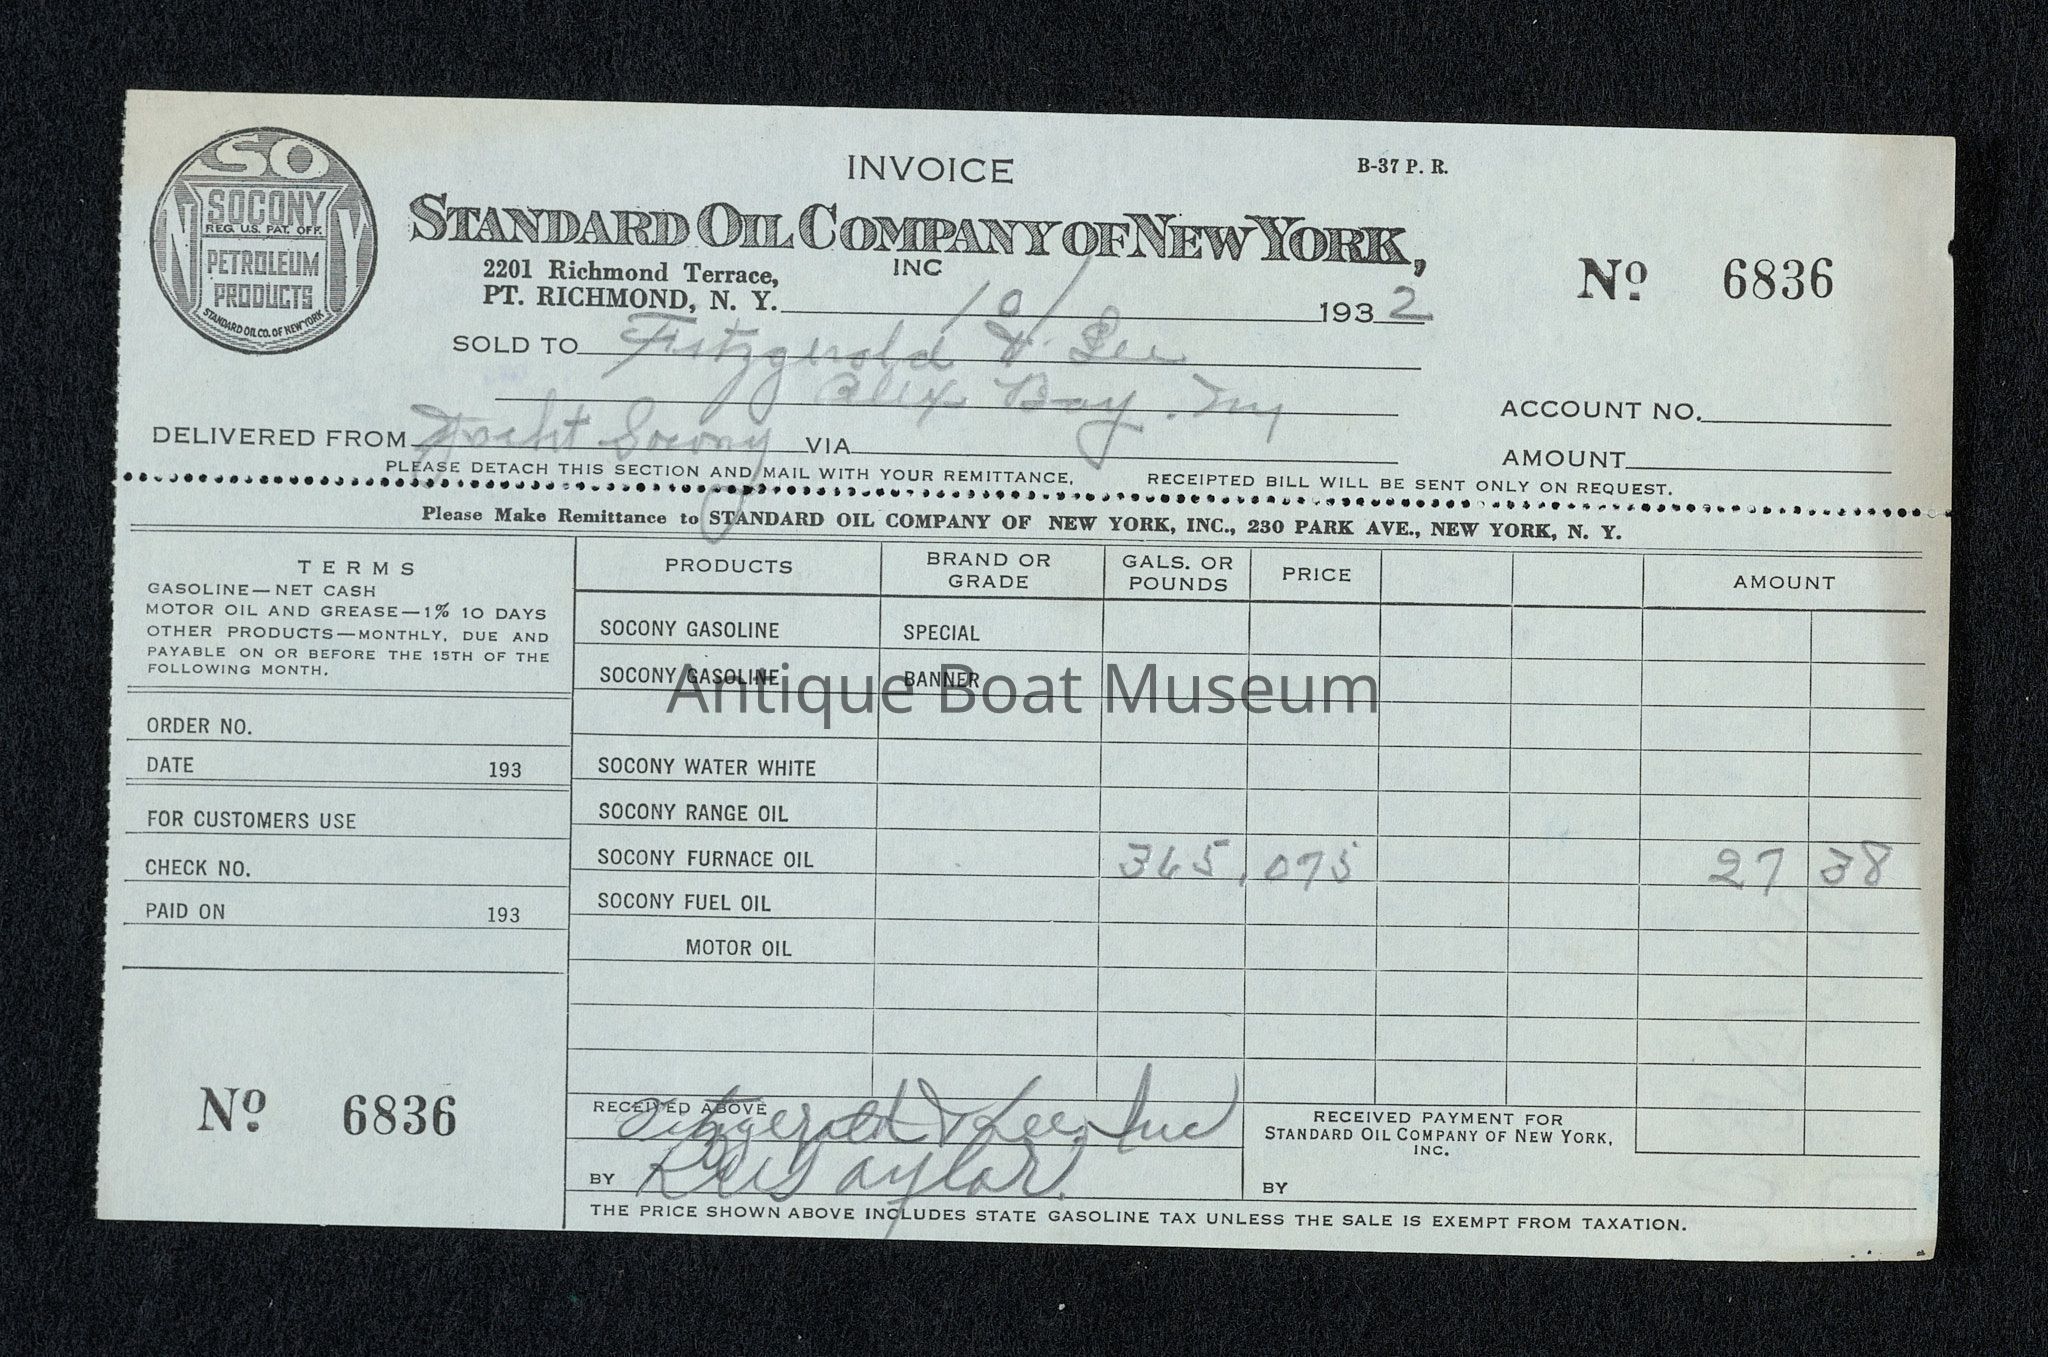 SO
N Y
SOCONY
REG. U.S. PAT. OFF.
PETROLEUM
PRODUCTS
STANDARD OIL CO. OF NEW YORK
INVOICE
B-37 P. R.
STANDARD OIL COMPANY OF NEW YORK,
INC
2201 Richmond Terrace,
PT. RICHMOND, N. Y. 193 2
No 6836
SOLD TO Fitzgerald & Lee
Alex Bay. Ny
ACCOUNT NO.
DELIVERED FROM Yacht Socony VIA
AMOUNT
PLEASE DETACH THIS SECTION AND MAIL WITH YOUR REMITTANCE, RECEIPTED BILL WILL BE SENT ONLY ON REQUEST.
Please Make Remittance to STANDARD OIL COMPANY OF NEW YORK, INC., 230 PARK AVE., NEW YORK, N. Y.
TERMS
GASOLINE—NET CASH
MOTOR OIL AND GREASE—1% 10 DAYS
OTHER PRODUCTS—MONTHLY, DUE AND
PAYABLE ON OR BEFORE THE 15TH OF THE
FOLLOWING MONTH.
ORDER NO.
DATE 193
FOR CUSTOMERS USE
CHECK NO.
PAID ON 193
No 6836
PRODUCTS BRAND OR GRADE GALS. OR POUNDS PRICE AMOUNT
SOCONY GASOLINE SPECIAL
SOCONY GASOLINE BANNER
Antique Boat Museum
SOCONY WATER WHITE
SOCONY RANGE OIL
SOCONY FURNACE OIL 365 .075 27 38
SOCONY FUEL OIL
MOTOR OIL
RECEIVED ABOVE
Fitzgerald & Lee, Inc
BY Taylor.
RECEIVED PAYMENT FOR
STANDARD OIL COMPANY OF NEW YORK,
INC.
BY
THE PRICE SHOWN ABOVE INCLUDES STATE GASOLINE TAX UNLESS THE SALE IS EXEMPT FROM TAXATION.